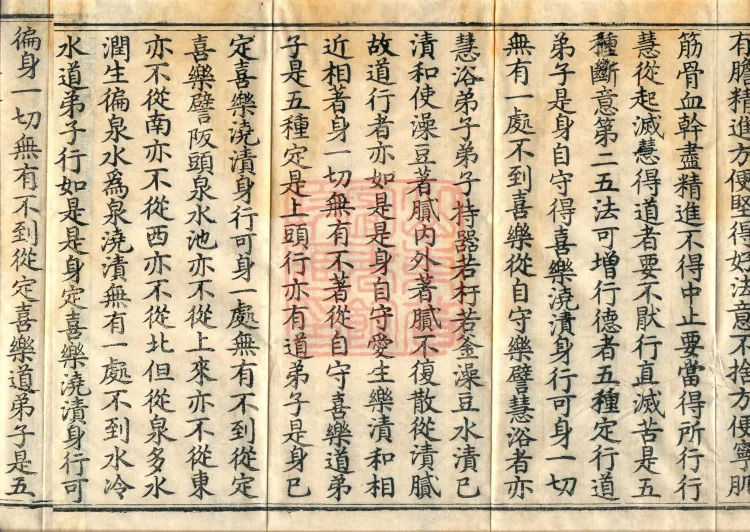 有膽精進方便堅得好法意不捨方便寧肌
筋骨血幹盡精進不得中止要當得所行行
慧從起滅慧得道者要不猒行直滅苦是五
種斷意第二五法可增行德者五種定行道
弟子是身自守得喜樂澆漬身行可身一切
無有一處不到喜樂從自守樂譬慧浴者亦
慧浴弟子弟子持器若杅若釜澡豆水漬已
漬和使澡豆著膩內外著膩不復散從漬膩
故道行者亦如是是身自守愛生樂漬和相
近相著身一切無有不著從自守喜樂道弟
子是五種定是上頭行亦有道弟子是身已
定喜樂澆漬身行可身一處無有不到從定
喜樂譬阪頭泉水池亦不從上來亦不從東
亦不從南亦不從西亦不從北但從泉多水
潤生徧泉水爲泉澆漬無有一處不到水冷
水道弟子行如是是身定喜樂澆漬身行可
徧身一切無有不到從定喜樂道弟子是五